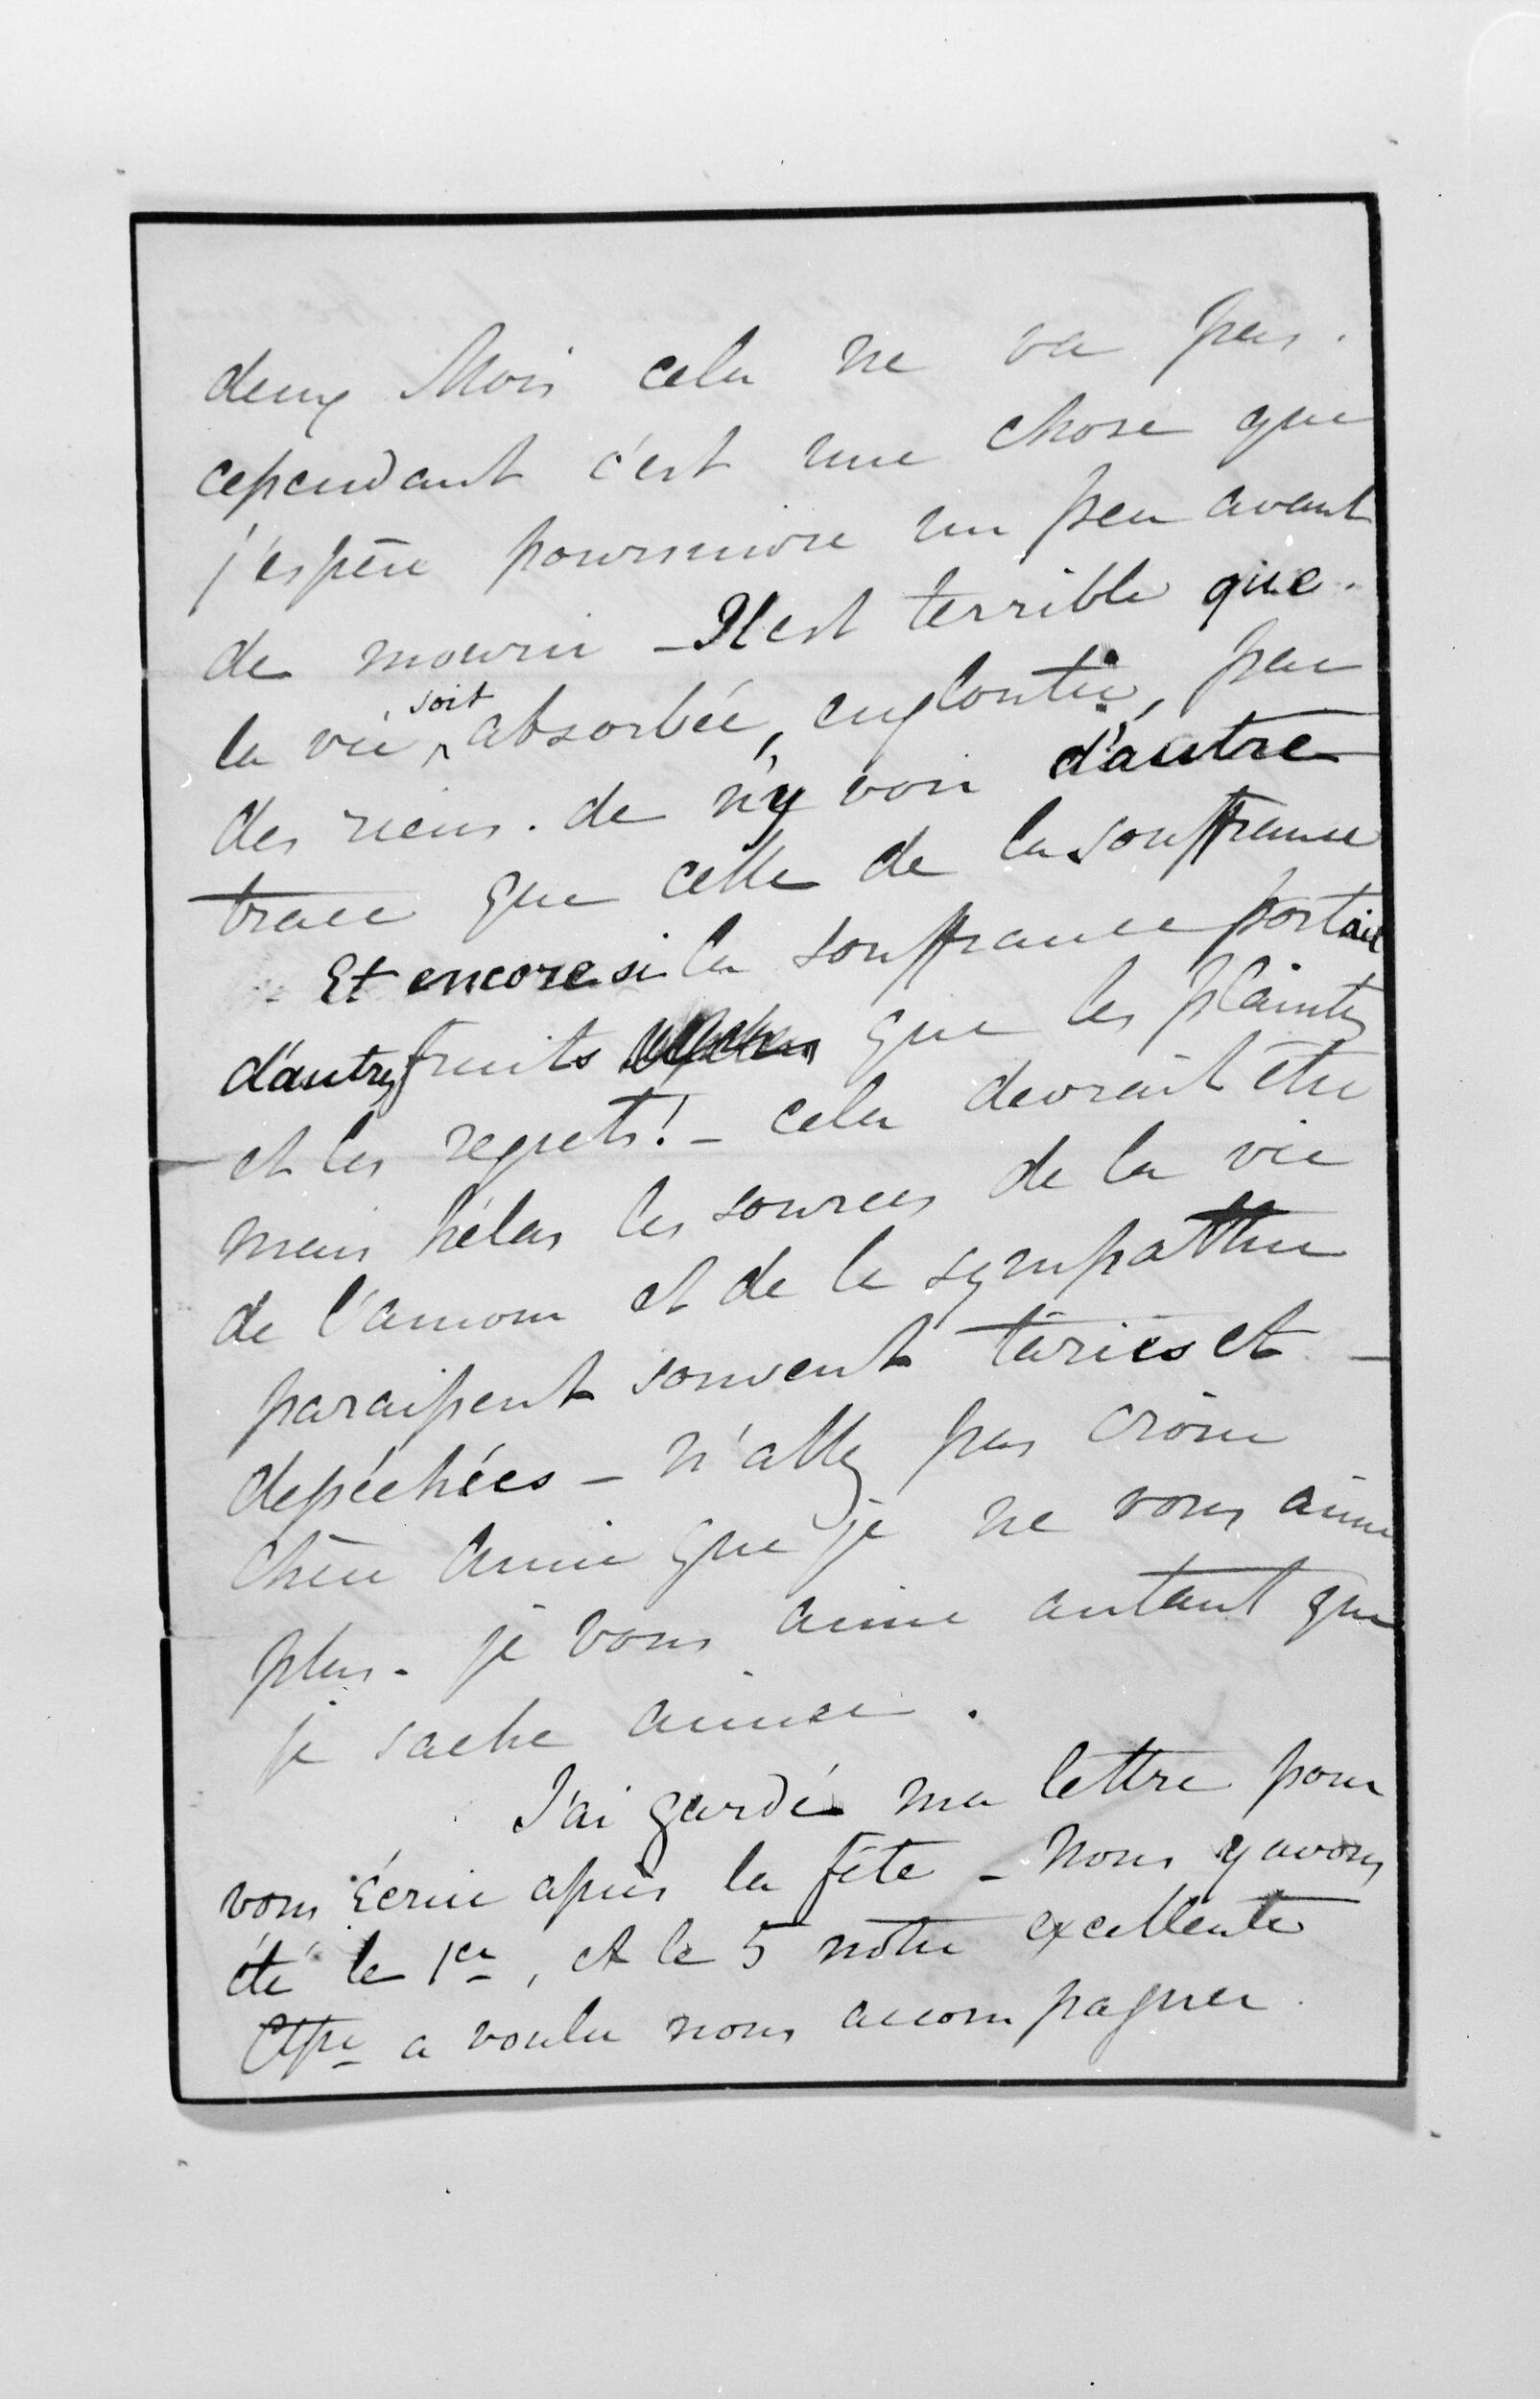 deux Mois cela ne va pas.
cependant c'est une chose que
j'espère poursuivre un peu avant
de mourir _ Il est terrible que.
la vie soit absorbée, engloutie, par
des riens. de n'y voir d'autre
trace que celle de la souffrance
Et encore si la souffrance portait
d'autres fruits que les plaintes
et les regrets! _ cela devrait être
mais hélas les sources de la vie
de l'amour et de la sympathie
paraissent souvent taries et
depéchées _ n'allez pas croire
chère Amie que je ne vous aime
plus. je vous aime autant que
je sache aimer.
J'ai gardé ma lettre pour
vous Écrire après la fête _ Nous y avons
été le 1er, et le 5 notre excellente
a voulu nous accompagner.